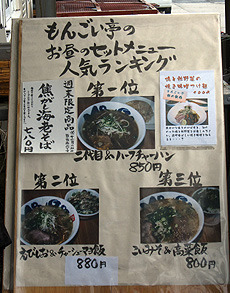 もんごい亭の
お昼のセットメニュー
人気ランキング
第一位
二代目&ハーフチャーハン
850円
週末限定商品
焦がし海老そば
七八〇円
焼き味噌つけ麺
第二位
えびしお&チャーシューマヨ飯
880円
第三位
こいみそ&高菜飯
800円